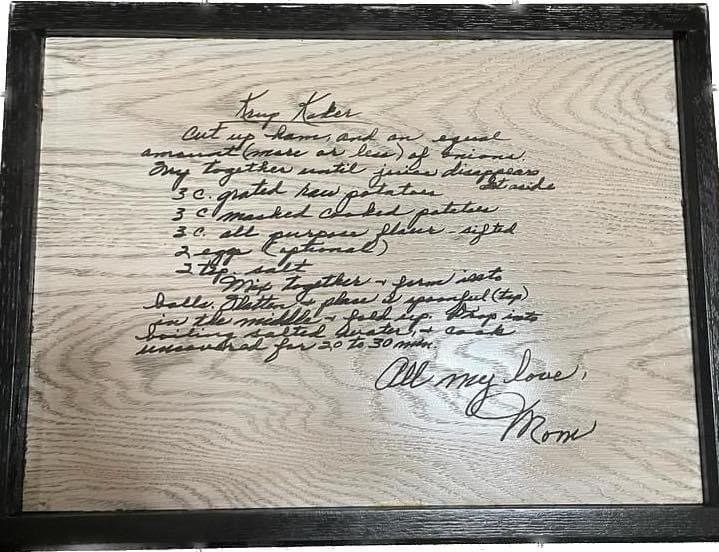 Krup Kaker
Cut up ham, and an equal
amount (more or less) of onions.
Fry together until juice disappears
Set aside
3 c. grated raw potatoes
3 c. mashed cooked potatoes
3 c. all purpose flour - sifted
2 eggs (optional)
2 tsp. salt
Mix together + form into
balls. Flatten, + place a spoonful (tsp)
in the middle + fold up. Drop into
boiling salted water, + cook
uncovered for 20 to 30 min.
All my love,
Mom